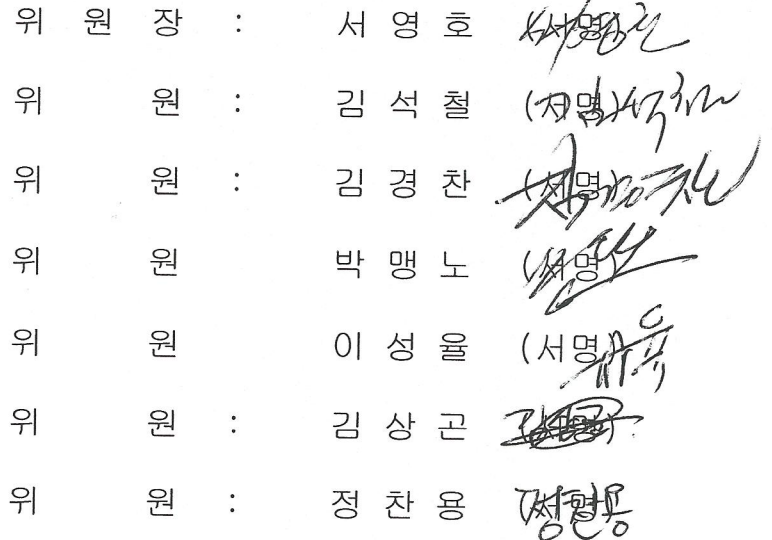 위 원 장 : 서 영 호 (서명)
위 원 : 김 석 철 (서명)
위 원 : 김 경 찬 (서명)
위 원 박 맹 노 (서명)
위 원 이 성 율 (서명)
위 원 : 김 상 곤 (서명)
위 원 : 정 찬 용 (서명)